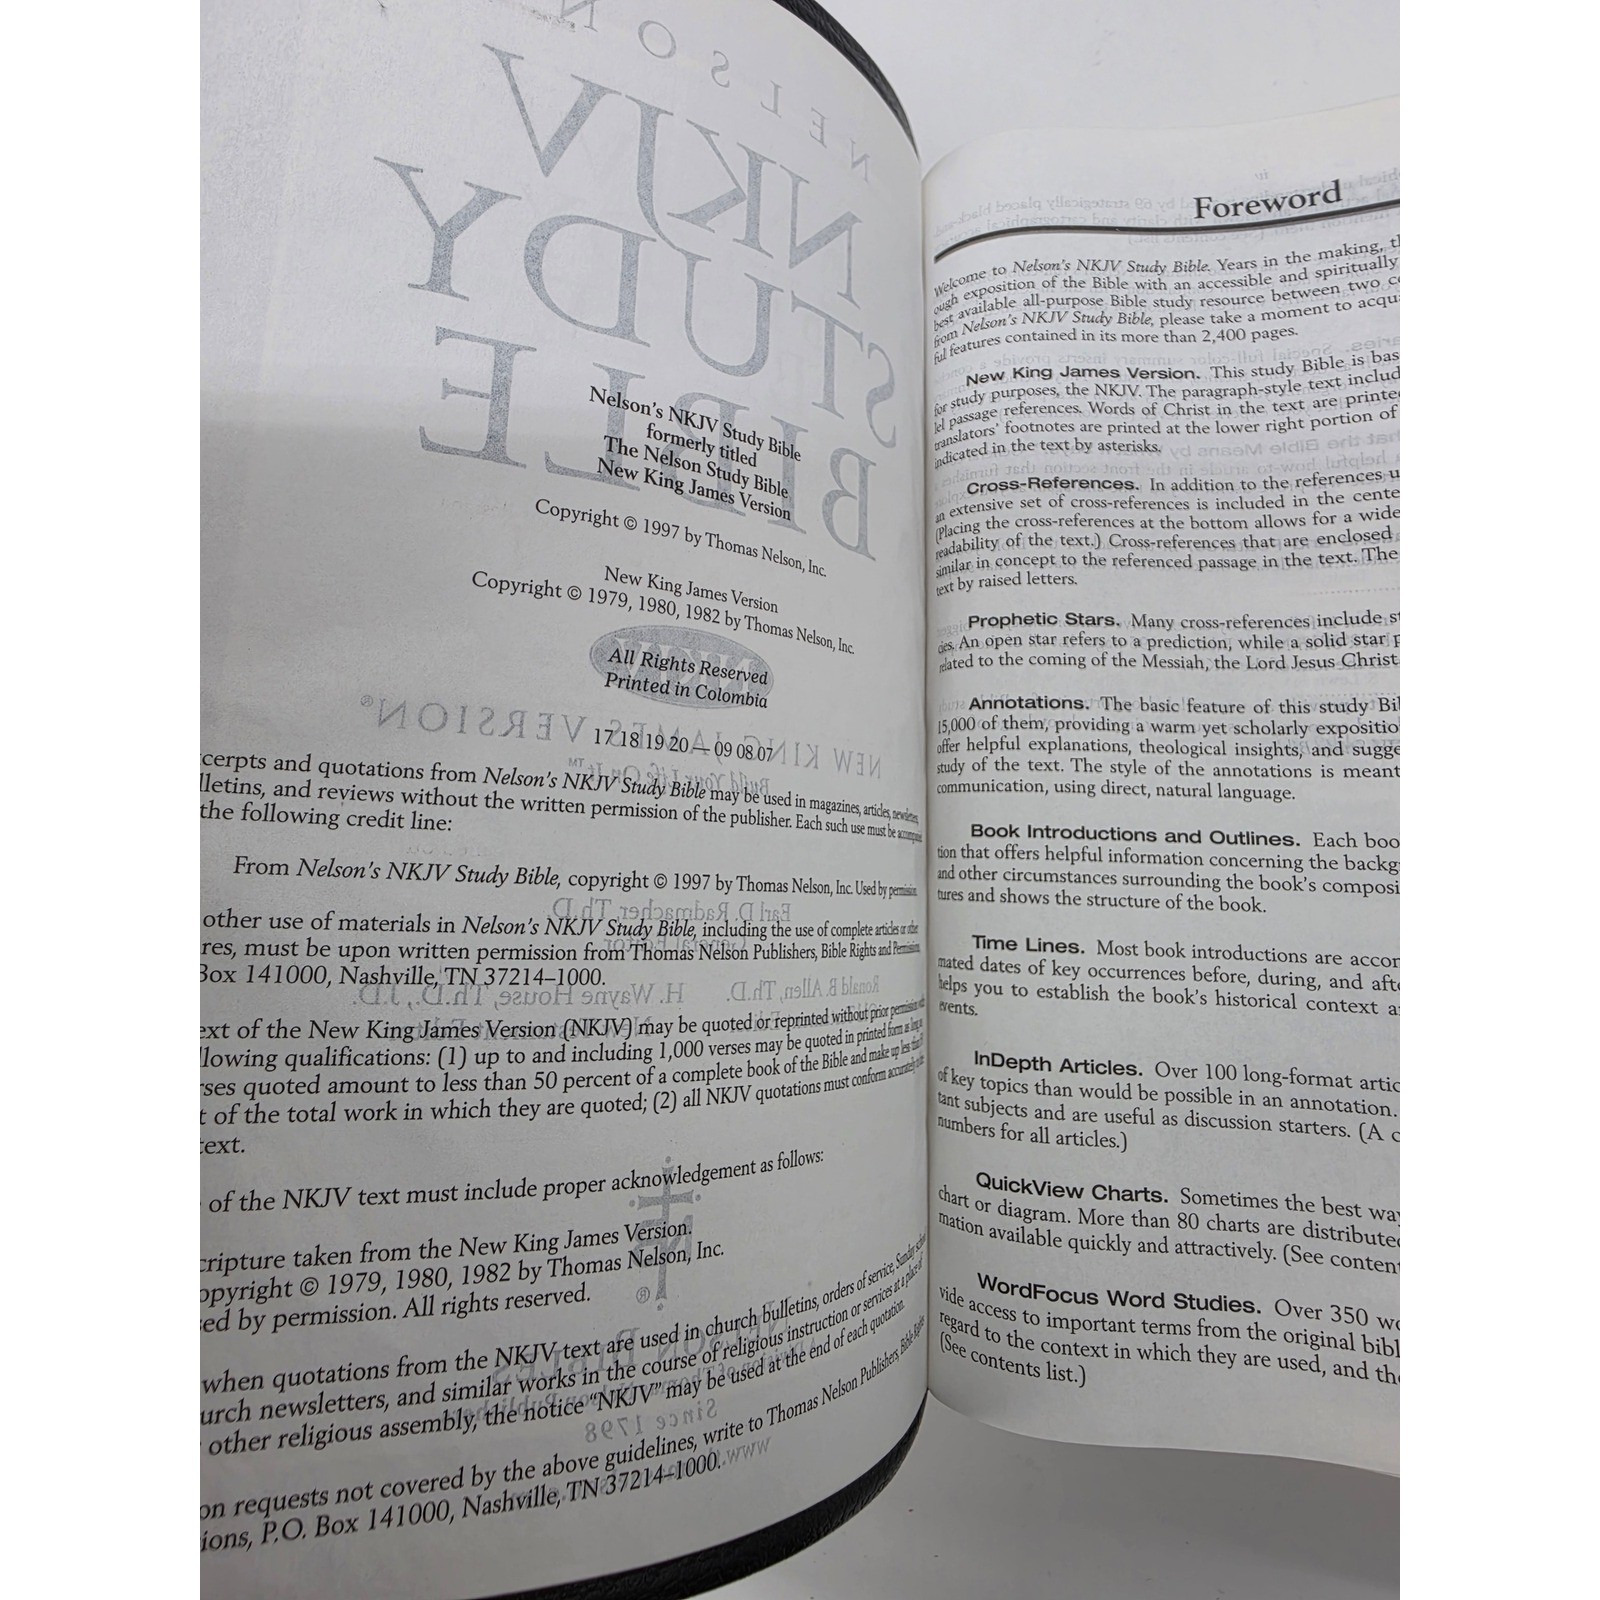 Nelson's NKJV Study Bible
formerly titled
The Nelson Study Bible
New King James Version
Copyright © 1997 by Thomas Nelson, Inc.
New King James Version
Copyright © 1979, 1980, 1982 by Thomas Nelson, Inc.
All Rights Reserved
Printed in Colombia
17 18 19 20 — 09 08 07
cerpts and quotations from Nelson's NKJV Study Bible may be used in magazines, articles, newsletters,
lletins, and reviews without the written permission of the publisher. Each such use must be
the following credit line:
From Nelson's NKJV Study Bible, copyright © 1997 by Thomas Nelson, Inc. Used by permission.
other use of materials in Nelson's NKJV Study Bible, including the use of complete articles or other
res, must be upon written permission from Thomas Nelson Publishers, Bible Rights and Permissions,
Box 141000, Nashville, TN 37214–1000.
ext of the New King James Version (NKJV) may be quoted or reprinted without prior permission with
llowing qualifications: (1) up to and including 1,000 verses may be quoted in printed form as long as
rses quoted amount to less than 50 percent of a complete book of the Bible and make up less than
t of the total work in which they are quoted; (2) all NKJV quotations must conform accurately to the
text.
of the NKJV text must include proper acknowledgement as follows:
cripture taken from the New King James Version.
opyright © 1979, 1980, 1982 by Thomas Nelson, Inc.
sed by permission. All rights reserved.
when quotations from the NKJV text are used in church bulletins, orders of service, Sunday school
urch newsletters, and similar works in the course of religious instruction or services at a place of
other religious assembly, the notice "NKJV" may be used at the end of each quotation.
on requests not covered by the above guidelines, write to Thomas Nelson Publishers, Bible Rights
ions, P.O. Box 141000, Nashville, TN 37214–1000.
Foreword
Welcome to Nelson's NKJV Study Bible. Years in the making, th
ough exposition of the Bible with an accessible and spiritually
best available all-purpose Bible study resource between two co
from Nelson's NKJV Study Bible, please take a moment to acqua
ful features contained in its more than 2,400 pages.
New King James Version. This study Bible is bas
for study purposes, the NKJV. The paragraph-style text includ
lel passage references. Words of Christ in the text are printe
translators' footnotes are printed at the lower right portion of
indicated in the text by asterisks.
Cross-References. In addition to the references u
an extensive set of cross-references is included in the cente
(Placing the cross-references at the bottom allows for a wide
readability of the text.) Cross-references that are enclosed
similar in concept to the referenced passage in the text. The
text by raised letters.
Prophetic Stars. Many cross-references include st
cies. An open star refers to a prediction, while a solid star p
related to the coming of the Messiah, the Lord Jesus Christ
Annotations. The basic feature of this study Bi
15,000 of them, providing a warm yet scholarly expositio
offer helpful explanations, theological insights, and sugge
study of the text. The style of the annotations is meant
communication, using direct, natural language.
Book Introductions and Outlines. Each boo
tion that offers helpful information concerning the backg
and other circumstances surrounding the book's composi
tures and shows the structure of the book.
Time Lines. Most book introductions are accor
mated dates of key occurrences before, during, and afte
helps you to establish the book's historical context a
events.
InDepth Articles. Over 100 long-format artic
of key topics than would be possible in an annotation.
tant subjects and are useful as discussion starters. (A c
numbers for all articles.)
QuickView Charts. Sometimes the best way
chart or diagram. More than 80 charts are distribute
mation available quickly and attractively. (See conten
WordFocus Word Studies. Over 350 wo
vide access to important terms from the original bibl
regard to the context in which they are used, and th
(See contents list.)